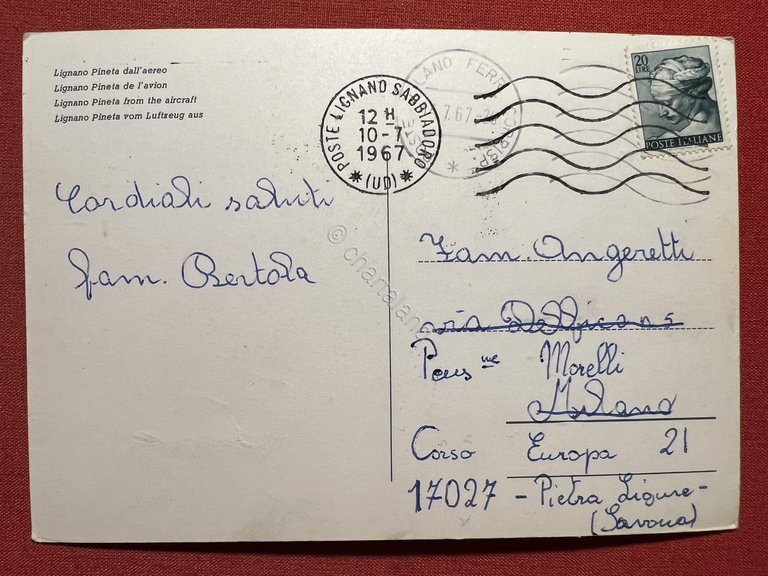 Lignano Pineta dall'aereo
Lignano Pineta de l'avion
Lignano Pineta from the aircraft
Lignano Pineta vom Luftzeug aus
POSTE LIGNANO SABBIADORO
12 H
10-7
1967
(UD)
20
LIRE
POSTE ITALIANE
Cordiali saluti
fam. Bertola
Fam. Angeretti
via
Pens ne Morelli
Milano
Corso Europa 21
17027 - Pietra Ligure -
(Savona)